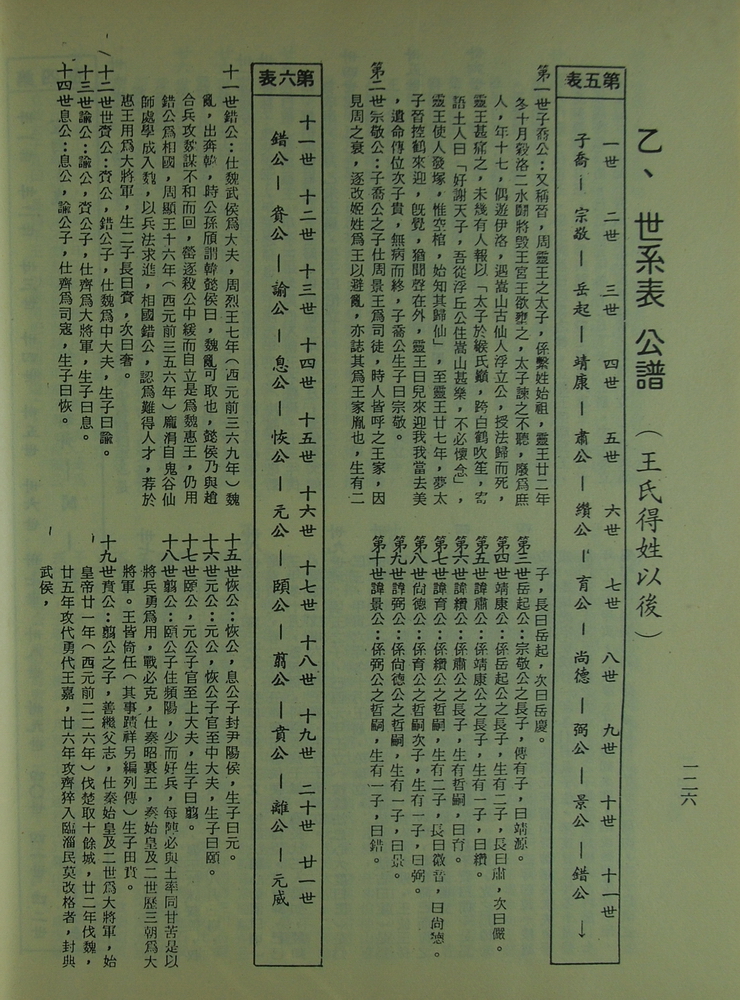 乙、世系表 公譜（王氏得姓以後）
一二六
第五表
一世 二世 三世 四世 五世 六世 七世 八世 九世 十世 十一世
子喬—宗敬—岳起—靖康—肅公—纘公—育公—尚德—弼公—景公—錯公→
第一世子喬公：又稱晉，周靈王之太子，係繫姓始祖，靈王廿二年
冬十月穀洛二水鬪將毀王宮王欲壅之，太子諫之不聽，廢為庶
人，年十七，偶遊伊洛，遇嵩山古仙人浮立公，授法歸而死，
靈王甚痛之，未幾有人報以「太子於緱氏巔，跨白鶴吹笙，寄
語土人曰「好謝天子，吾從浮丘公住嵩山甚樂，不必懷念」，
靈王使人發塚，惟空棺，始知其歸仙」，至靈王廿七年，夢太
子晉控鶴來迎，既覺，猶聞聲在外，靈王曰兒來迎我我當去美
，遺命傳位次子貴，無病而終，子喬公生子曰宗敬。
第二世宗敬公：子喬公之子仕周景王爲司徒，時人皆呼之王家，因
見周之衰，逐改姬姓爲王以避亂，亦誌其爲王家胤也，生有二
子，長曰岳起，次曰岳慶。
第三世岳起公：宗敬公之長子，傳有子，曰靖源。
第四世靖康公：係岳起公之長子，生有二子，長曰肅，次曰儼。
第五世諱肅公：係靖康公之長子，生有一子，曰纘。
第六世諱纘公：係肅公之長子，生有哲嗣，曰育。
第七世諱育公：係纘公之哲嗣，生有二子，長曰徵音，曰尚德。
第八世尙德公：係育公之哲嗣次子，生有一子，曰弼。
第九世諱弼公：係尙德公之哲嗣，生有一子，曰景。
第十世諱景公：係弼公之哲嗣，生有一子，曰錯。
第六表
十一世 十二世 十三世 十四世 十五世 十六世 十七世 十八世 十九世 二十世 廿一世
錯公—賁公—諭公—息公—恢公—元公—頤公—翦公—賁公—離公—元威
十一世錯公：仕魏武侯爲大夫，周烈王七年（西元前三六九年）魏
亂，出奔韓，時公孫頎謂韓懿侯曰，魏亂可取也，懿侯乃與趙
合兵攻魏謀不和而回，罃逐殺公中緩而自立是爲魏惠王，仍用
錯公爲相國，周顯王十六年（西元前三五六年）龐涓自鬼谷仙
師處學成入魏，以兵法求進，相國錯公，認爲難得人才，荐於
惠王用爲大將軍，生二子長曰賁，次曰奢。
十二世世賁公：賁公，錯公子，仕魏爲中大夫，生子曰諭。
十三世諭公：諭公，賁公子，仕齊爲大將軍，生子曰息。
十四世息公：息公，諭公子，仕齊爲司寇，生子曰恢。
十五世恢公：恢公，息公子封尹陽侯，生子曰元。
十六世元公：元公，恢公子官至中大夫，生子曰頤。
十七世頤公，元公子官至上大夫，生子曰翦。
十八世翦公：頤公子住頻陽，少而好兵，每陣必與士率同甘苦是以
將兵勇爲用，戰必克，仕秦昭襄王，秦始皇及二世歷三朝爲大
將軍。王皆倚任（其事蹟祥另編列傳）生子田賁。
十九世賁公：翦公之子，善繼父志，仕秦始皇及二世爲大將軍，始
皇帝廿一年（西元前二二六年）伐楚取十餘城，廿二年伐魏，
廿五年攻代勇代王嘉，廿六年攻齊猝入臨淄民莫改格者，封典
武侯，